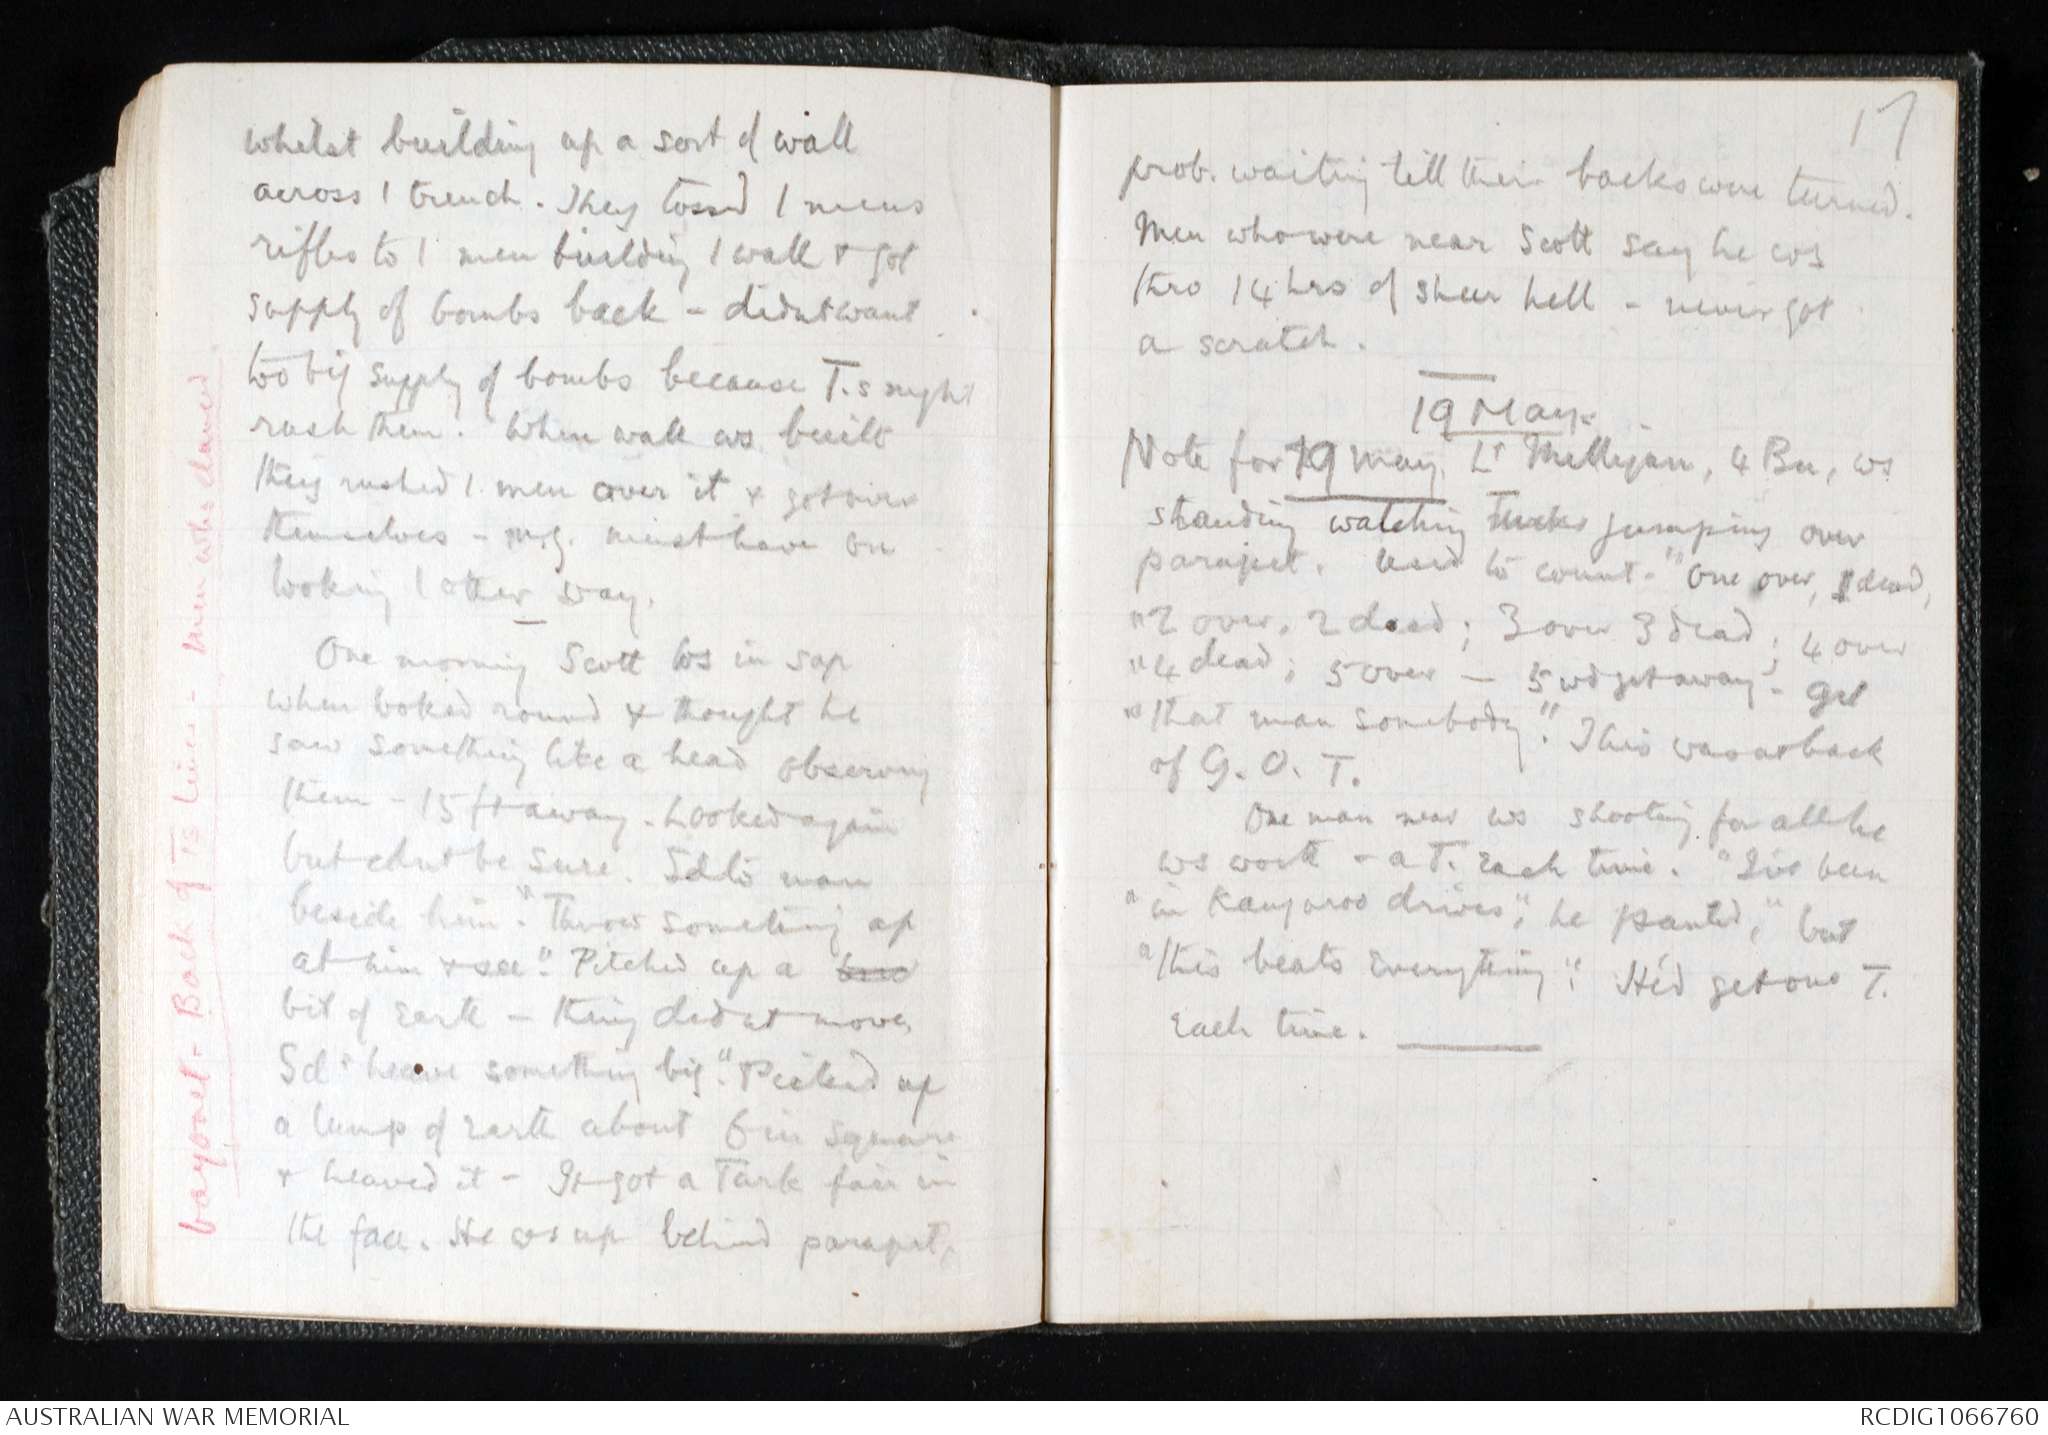 whilst building up a sort of wall
across / trench. They tossed / mens
rifles to / men building / wall & got
supply of bombs back - didnt want
too big supply of bombs because T.s might
rush them. When wall ws built
they rushed / men over it & got over
themselves - m.g. must have bn
looking / other way.
One morning Scott ws in sap
when looked round & thought he
saw something like a head observing
them - 15 ft away. Looked again
but cdnt be sure. Sd to man
beside him "Throw something up
at him & see". Pitched up a
bit of earth - thing did not move,
Sd "heave something big". Picked up
a lump of earth about 6 in square
& heaved it - It got a Turk fair in
the face. He ws up behind parapet,
bayonet - Back of Ts lines - men who
17
prob. waiting till their backs were turned.
Men who were near Scott say he ws
thro 14 hrs of sheer hell - never got
a scratch.
19 May.
Note for 19 May. Lt Milligan, 4 Bn, ws
standing watching Turks jumping over
parapet. Used to count - "One over, 1 dead,
"2 over, 2 dead; 3 over 3 dead; 4 over
"4 dead; 5 over — 5 wd get away - get
"that man somebody". This was at back
of G. O. T.
One man near ws shooting for all he
ws worth - a T. each time. "Ive been
"in Kangaroo drives", he panted, "but
"this beats everything". He'd get one T.
each time.
AUSTRALIAN WAR MEMORIAL
RCDIG1066760